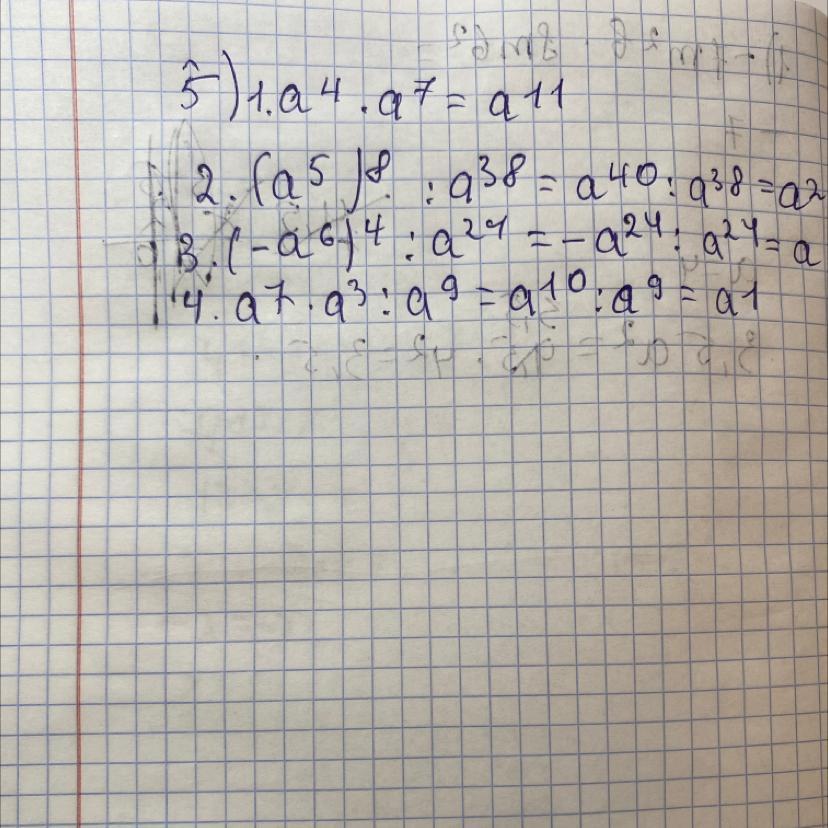 5) 1. a4 · a7 = a11
2. (a5)8 : a38 = a40 : a38 = a2
3. (-a6)4 : a24 = -a24 : a24 = a
4. a7 · a3 : a9 = a10 : a9 = a1